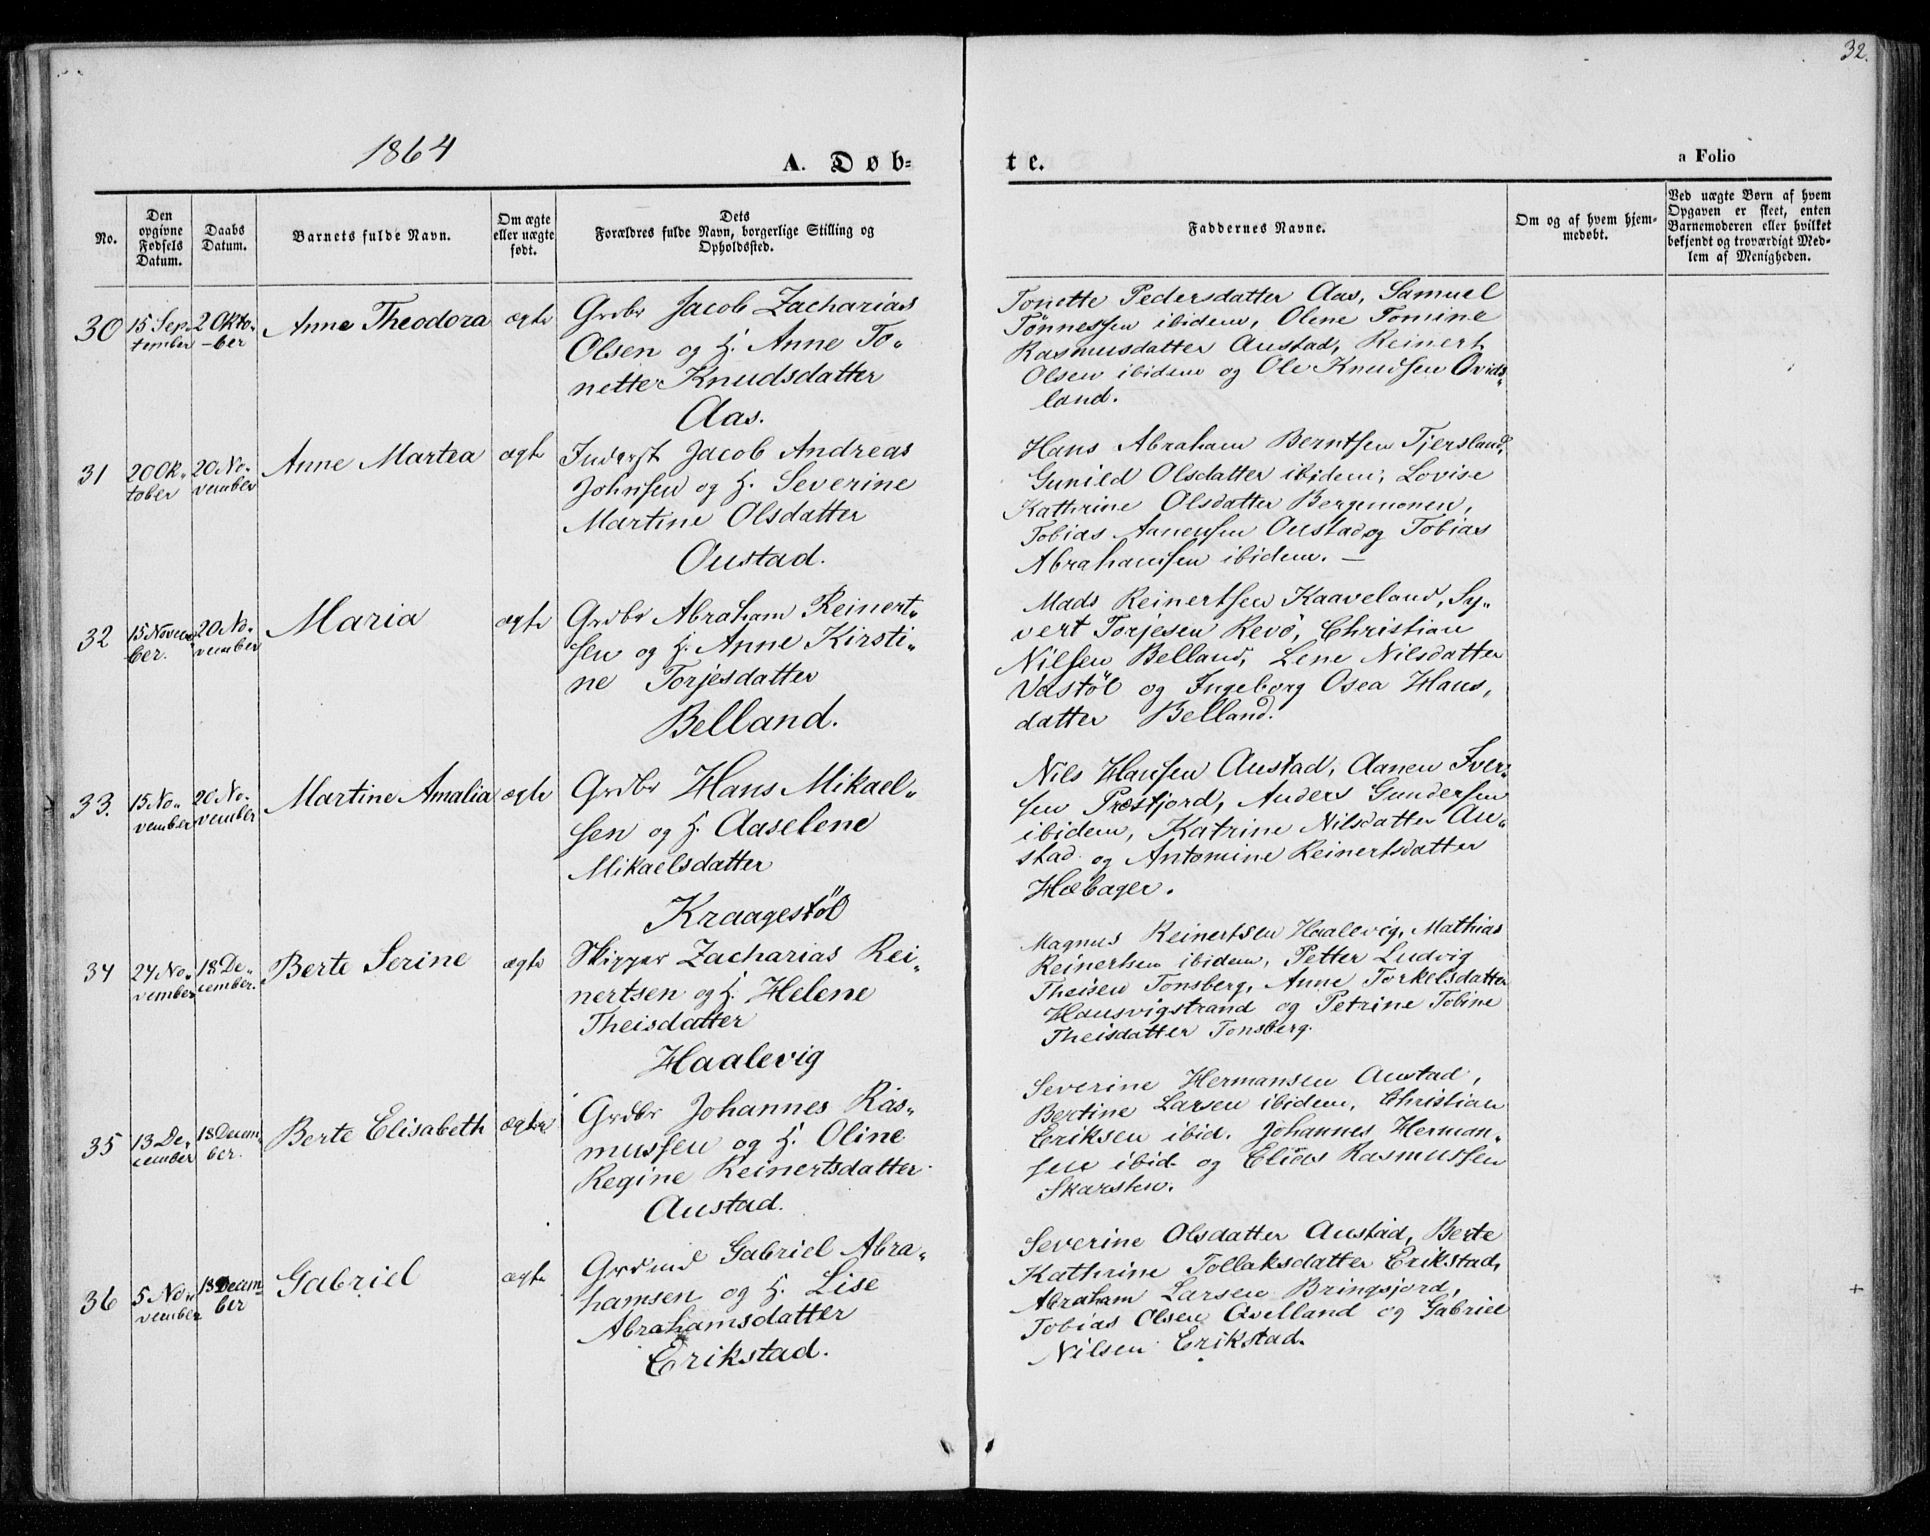 32.
1864
A. Døb-
te.
a Folio
No.
Den
opgivne
Fødsels
Datum.
Daabs
Datum.
Barnets fulde Navn.
Om ægte
eller uægte
født.
Dets
Forældres fulde Navn, borgerlige Stilling og
Opholdssted.
Faddernes Navne.
Om og af hvem hjem-
medøbt.
Ved uægte Børn af hvem
Opgaven er skeet, enten
Barnemoderen eller hvilket
bekjendt og troværdigt Med-
lem af Menigheden.
30
15 Sep-
tember
2 Okto-
ber
Anne Theodora
ægte
Grdbr Jacob Zacharias
Olsen og H. Anne To-
nette Knudsdatter
Aas.
Tonette Pedersdatter Aas, Samuel
Tönnessen ibidem, Olene Tomine
Rasmusdatter Austad, Reinert
Olsen ibidem og Ole Knudsen Qvids-
land.
31
20 Ok-
tober
20 No-
vember
Anne Martea
ægte
Inderst Jacob Andreas
Johnsen og H. Severine
Martine Olsdatter
Austad.
Hans Abraham Berntsen Tjersland,
Gunild Olsdatter ibidem, Lovise
Kathrine Olsdatter Bergemonen,
Tobias Aanensen Austad og Tobias
Abrahamsen ibidem. —
32
15 Novem-
ber.
20 No-
vember
Maria
ægte
Grdbr Abraham Reinert-
sen og H. Anne Kirsti-
ne Torjesdatter
Belland.
Mads Reinertsen Kaaveland, Sy-
vert Torjesen Revö, Christian
Nilsen Belland, Lene Nilsdatter
Vastöl og Ingeborg Osea Hans-
datter Belland.
33.
15 No-
vember
20 No-
vember
Martine Amalia
ægte
Grdbr Hans Mikael-
sen og H. Aaselene
Mikaelsdatter
Kraagestöl
Nils Hansen Austad, Aanen Iver-
sen Præstjord, Anders Gundersen
ibidem, Katrine Nilsdatter Au-
stad og Antomine Reinertsdatter
Hæbager.
34
24 No-
vember
18 De-
cember.
Berte Serine
ægte
Skipper Zacharias Rei-
nertsen og H. Helene
Theisdatter
Haalevig
Magnus Reinertsen Haalevig, Mathias
Reinertsen ibidem, Petter Ludvig
Theisen Tonsberg, Anne Torkelsdatter
Hausvigstrand og Petrine Tobine
Theisdatter Tonsberg.
35
13 De-
cember
18 Decem-
ber.
Berte Elisabeth
ægte
Grdbr Johannes Ras-
mussen og H. Oline
Regine Reinertsdatter
Austad.
Severine Hermansen Austad,
Bertine Larsen ibidem, Christian
Eriksen ibid. Johannes Herman-
sen ibid. og Elias Rasmussen
Skarsten.
36
5 No-
vember
18 Decem-
ber
Gabriel
ægte
Grdmd Gabriel Abra-
hamsen og H. Lise
Abrahamsdatter
Erikstad.
Severine Olsdatter Austad, Berte
Kathrine Tollaksdatter Erikstad,
Abraham Larsen Bringsjord,
Tobias Olsen Qvelland og Gabriel
Nilsen Erikstad.
+